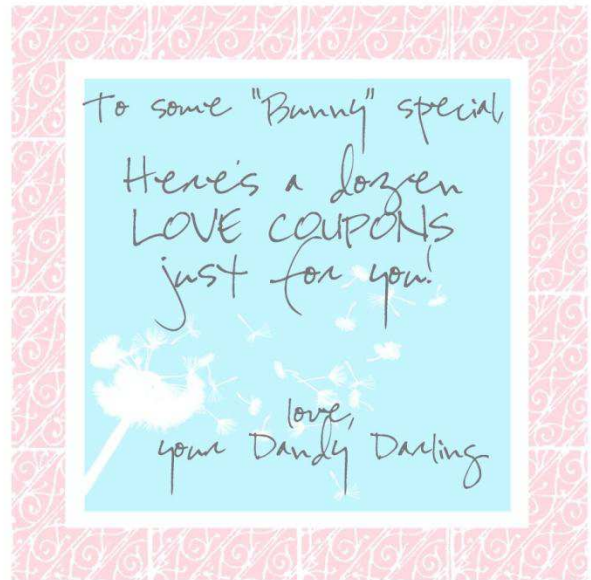 To some "Bunny" special,
Here's a dozen
LOVE COUPONS
just for you!
love,
your Dandy Darling